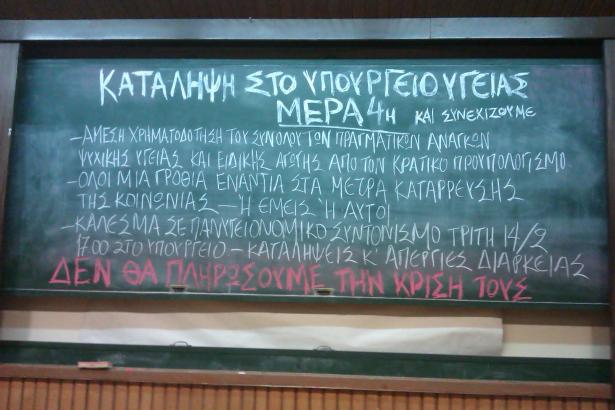 ΚΑΤΑΛΗΨΗ ΣΤΟ ΥΠΟΥΡΓΕΙΟ ΥΓΕΙΑΣ
ΜΕΡΑ 4η ΚΑΙ ΣΥΝΕΧΙΖΟΥΜΕ
–ΑΜΕΣΗ ΧΡΗΜΑΤΟΔΟΤΗΣΗ ΤΟΥ ΣΥΝΟΛΟΥ ΤΩΝ ΠΡΑΓΜΑΤΙΚΩΝ ΑΝΑΓΚΩΝ
ΨΥΧΙΚΗΣ ΥΓΕΙΑΣ ΚΑΙ ΕΙΔΙΚΗΣ ΑΓΩΓΗΣ ΑΠΟ ΤΟΝ ΚΡΑΤΙΚΟ ΠΡΟΥΠΟΛΟΓΙΣΜΟ
–ΟΛΟΙ ΜΙΑ ΓΡΟΘΙΑ ΕΝΑΝΤΙΑ ΣΤΑ ΜΕΤΡΑ ΚΑΤΑΡΡΕΥΣΗΣ
ΤΗΣ ΚΟΙΝΩΝΙΑΣ – Ή ΕΜΕΙΣ Ή ΑΥΤΟΙ
–ΚΑΛΕΣΜΑ ΣΕ ΠΑΝΥΓΕΙΟΝΟΜΙΚΟ ΣΥΝΤΟΝΙΣΜΟ ΤΡΙΤΗ 14/2
17.00 ΣΤΟ ΥΠΟΥΡΓΕΙΟ – ΚΑΤΑΛΗΨΕΙΣ Κ' ΑΠΕΡΓΙΕΣ ΔΙΑΡΚΕΙΑΣ
ΔΕΝ ΘΑ ΠΛΗΡΩΣΟΥΜΕ ΤΗΝ ΚΡΙΣΗ ΤΟΥΣ